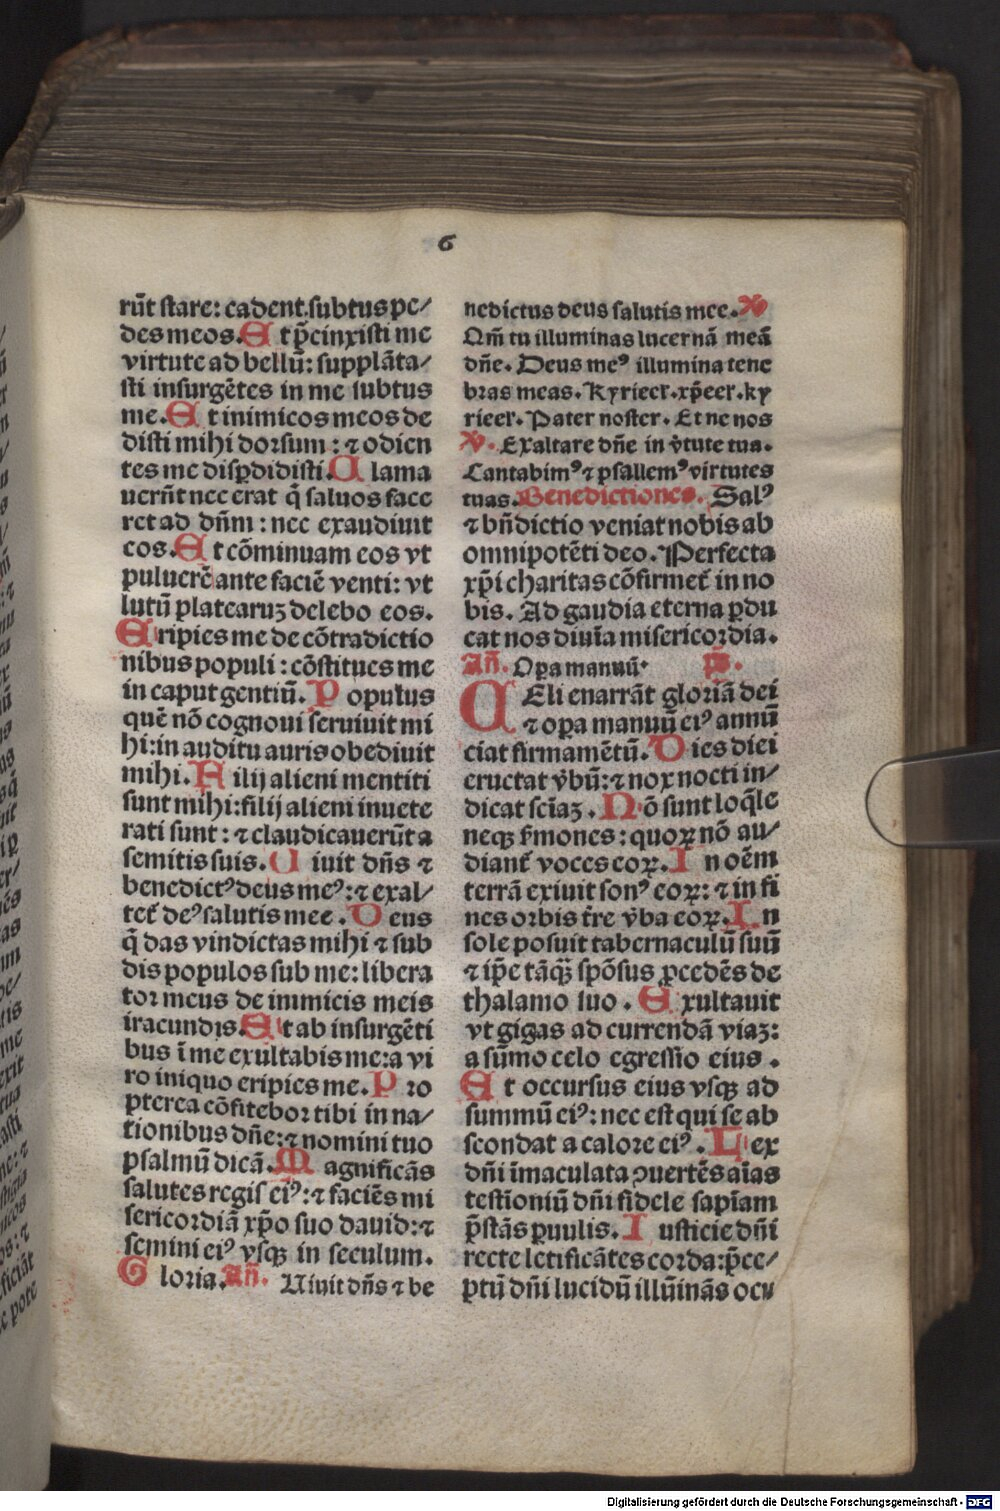 6
rūt stare: cadent subtus pe/
des meos. E t p̄cinxisti me
virtute ad bellū: supplāta/
sti insurgētes in me subtus
me. E t inimicos meos de
disti mihi dorsum: ⁊ odien
tes me disꝑdidisti. C lama
uerūt nec erat q̄ saluos face
ret ad dn̄m: nec exaudiuit
eos. E t cōminuam eos vt
puluerē ante faciē venti: vt
lutū platearuꝫ delebo eos.
Eripies me de cōtradictio
nibus populi: cōstitues me
in caput gentiū. P opulus
quē nō cognoui seruiuit mi
hi: in auditu auris obediuit
mihi. F ilij alieni mentiti
sunt mihi: filij alieni inuete
rati sunt: ⁊ claudicauerūt a
semitis suis. U iuit dn̄s ⁊
benedictꝰ deus meꝰ: ⁊ exal/
tet̄ deꝰ salutis mee. D eus
q̄ das vindictas mihi ⁊ sub
dis populos sub me: libera
tor meus de inimicis meis
iracundis. E t ab insurgēti
bus ī me exultabis me: a vi
ro iniquo eripies me. P ro
pterea cōfitebor tibi in na/
tionibus dn̄e: ⁊ nomini tuo
psalmū dicā. M agnificās
salutes regis eiꝰ: ⁊ faciēs mi
sericordiā xp̄o suo dauid: ⁊
semini eiꝰ vsqꝫ in seculum.
G loria. An̄. Uiuit dn̄s ⁊ be
nedictus deus salutis mee. V
Qm̄ tu illuminas lucernā meā
dn̄e. Deus meꝰ illumina tene
bras meas. Kyrieel. xp̄eel. ky
rieel. Pater noster. Et ne nos
V. Exaltare dn̄e in v̄tute tua.
Cantabimꝰ ⁊ psallemꝰ virtutes
tuas. Benedictiones. Salꝰ
⁊ bn̄dictio veniat nobis ab
omnipotēti deo. Perfecta
xp̄i charitas cōfirmet̄ in no
bis. Ad gaudia eterna ꝑdu
cat nos diuīa misericordia.
An̄. Opa manuū. p̄s.
C Eli enarrāt gloriā dei
⁊ oꝑa manuū eiꝰ annū
ciat firmamētū. D ies diei
eructat v̄bū: ⁊ nox nocti in/
dicat scīaꝫ. N ō sunt loq̄le
neqꝫ s̄mones: quoꝝ nō au/
diant̄ voces eoꝝ. I n oēm
terrā exiuit sonꝰ eoꝝ: ⁊ in fi
nes orbis t̄re v̄ba eoꝝ. I n
sole posuit tabernaculū suū
⁊ ip̄e tāqꝫ̄ spōsus ꝓcedēs de
thalamo suo. E xultauit
vt gigas ad currendā viaꝫ:
a sūmo celo egressio eius.
E t occursus eius vsqꝫ ad
summū eiꝰ: nec est qui se ab
scondat a calore eiꝰ. L ex
dn̄i īmaculata ↄuertēs aīas
testīoniū dn̄i fidele sapīam
p̄stās ꝑuulis. I usticie dn̄i
recte letificātes corda: p̄ce/
ptū dn̄i lucidū illūinās ocu
Digitalisierung gefördert durch die Deutsche Forschungsgemeinschaft - DFG